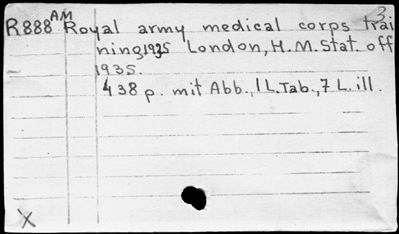 3
R888 AM Royal army medical corps trai
ning 1935 London, H.M.Stat. off
1935.
438 p. mit Abb., 1 L.Tab., 7 L. ill.
X